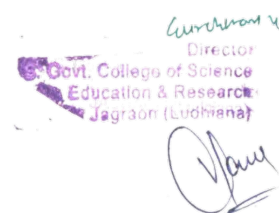 Director
Govt. College of Science
Education & Research
Jagraon (Ludhiana)